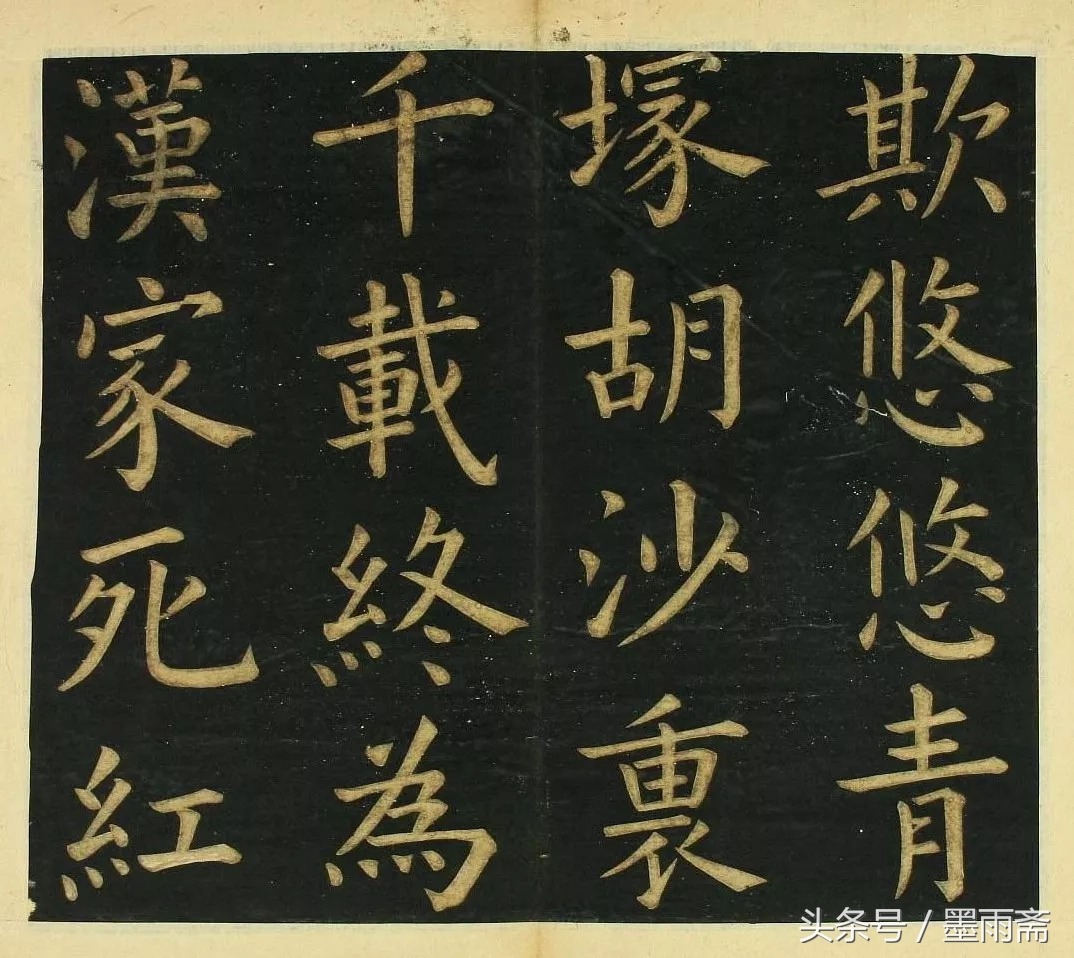 欺悠悠青
塚胡沙裏
千載終為
漢家死紅
头条号 / 墨雨斋